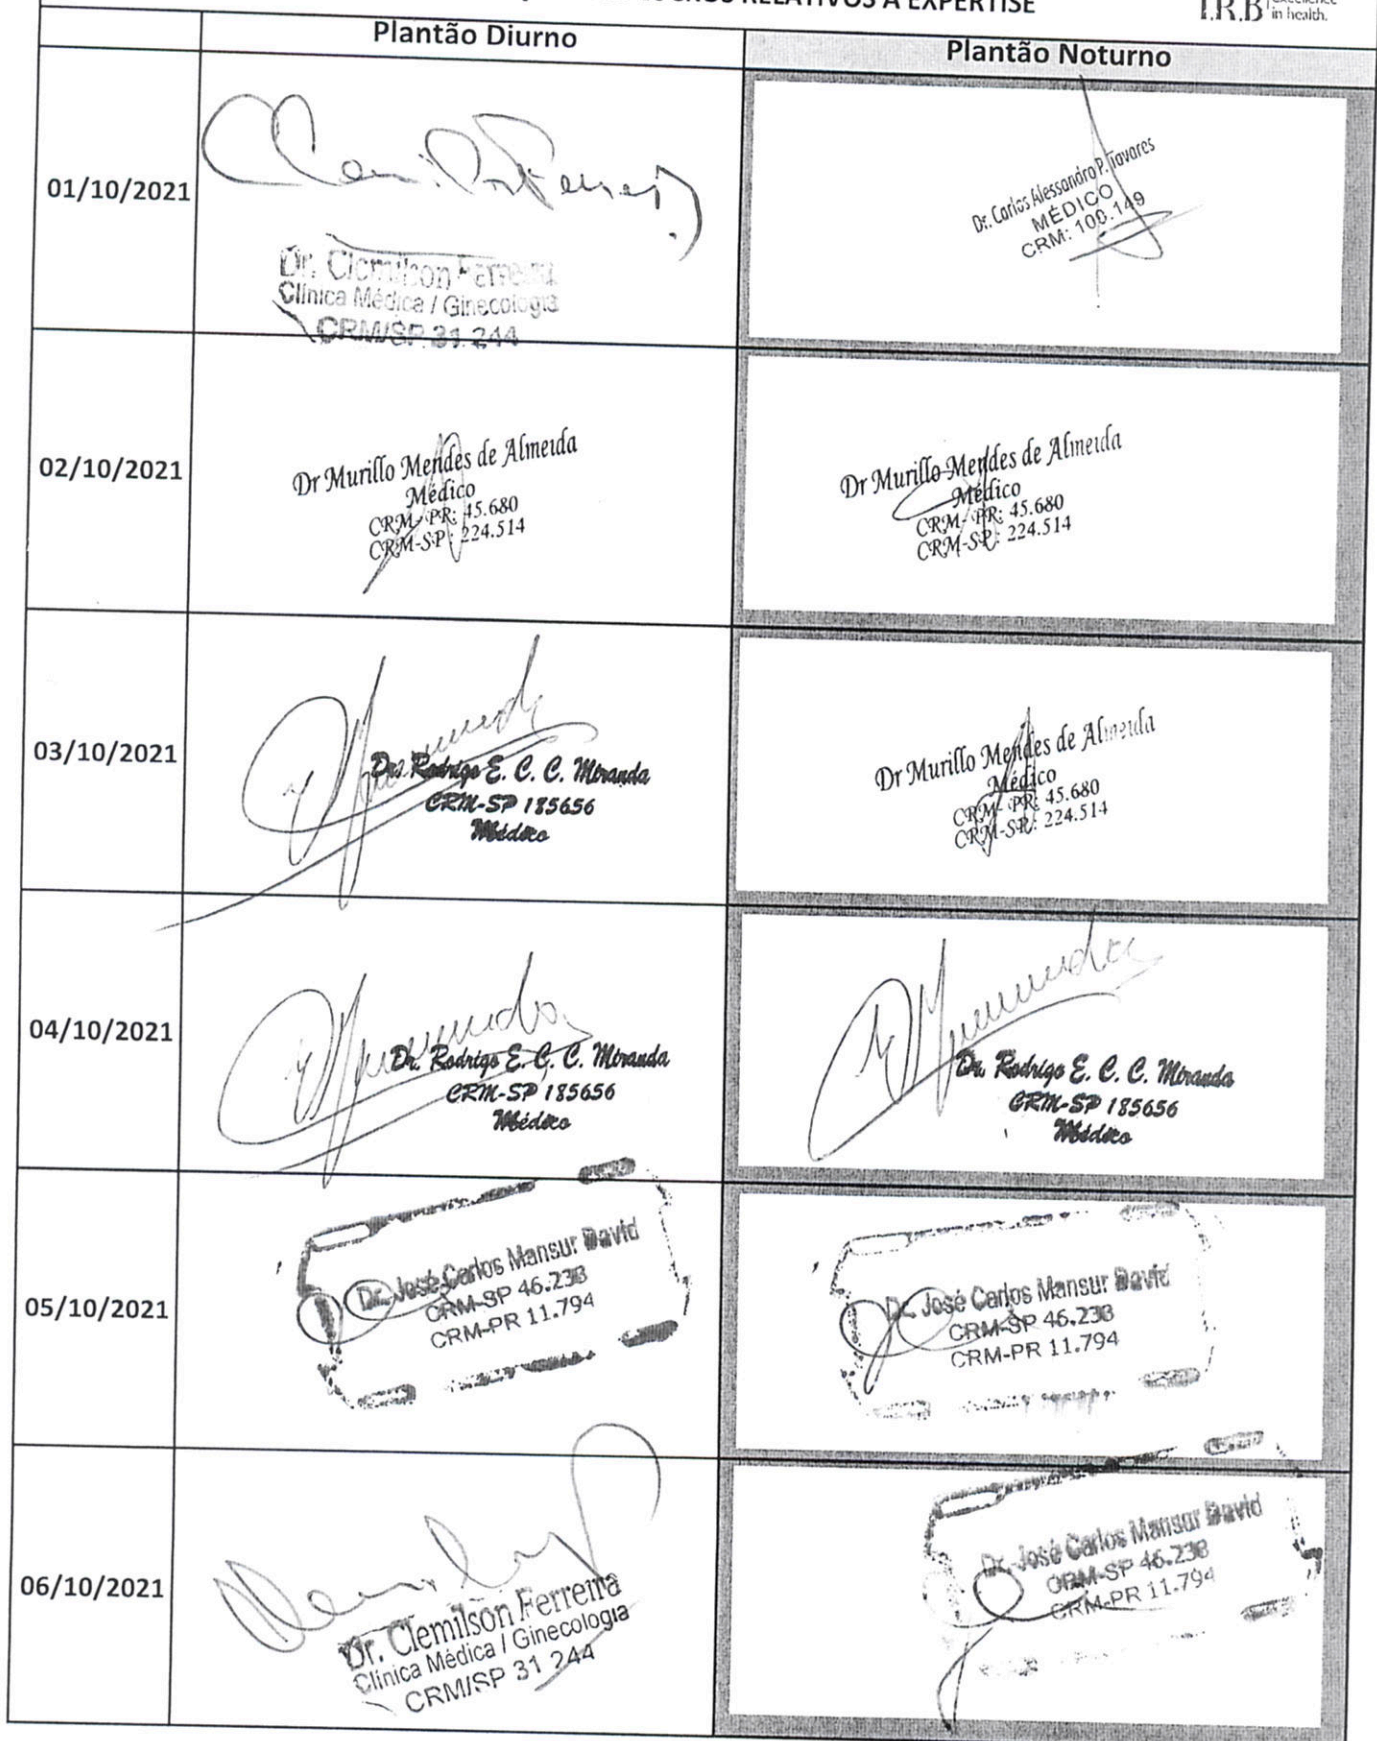 RELATIVOS A EXPERTISE
I.R.B
in health.
Plantão Diurno
Plantão Noturno
01/10/2021
Dr. Clemilson Ferreira
Clínica Médica / Ginecologia
CRM/SP 31 244
Dr. Carlos Alessandro P. Tavares
MÉDICO
CRM: 100.149
02/10/2021
Dr Murillo Mendes de Almeida
Médico
CRM- PR: 45.680
CRM-SP: 224.514
Dr Murillo Mendes de Almeida
Médico
CRM- PR: 45.680
CRM-SP: 224.514
03/10/2021
Dr. Rodrigo E. C. C. Miranda
CRM-SP 185656
Médico
Dr Murillo Mendes de Almeida
Médico
CRM- PR: 45.680
CRM-SP: 224.514
04/10/2021
Dr. Rodrigo E. C. C. Miranda
CRM-SP 185656
Médico
Dr. Rodrigo E. C. C. Miranda
CRM-SP 185656
Médico
05/10/2021
Dr. José Carlos Mansur David
CRM-SP 46.238
CRM-PR 11.794
Dr. José Carlos Mansur David
CRM-SP 46.238
CRM-PR 11.794
06/10/2021
Dr. Clemilson Ferreira
Clínica Médica / Ginecologia
CRM/SP 31 244
Dr. José Carlos Mansur David
CRM-SP 46.238
CRM-PR 11.794